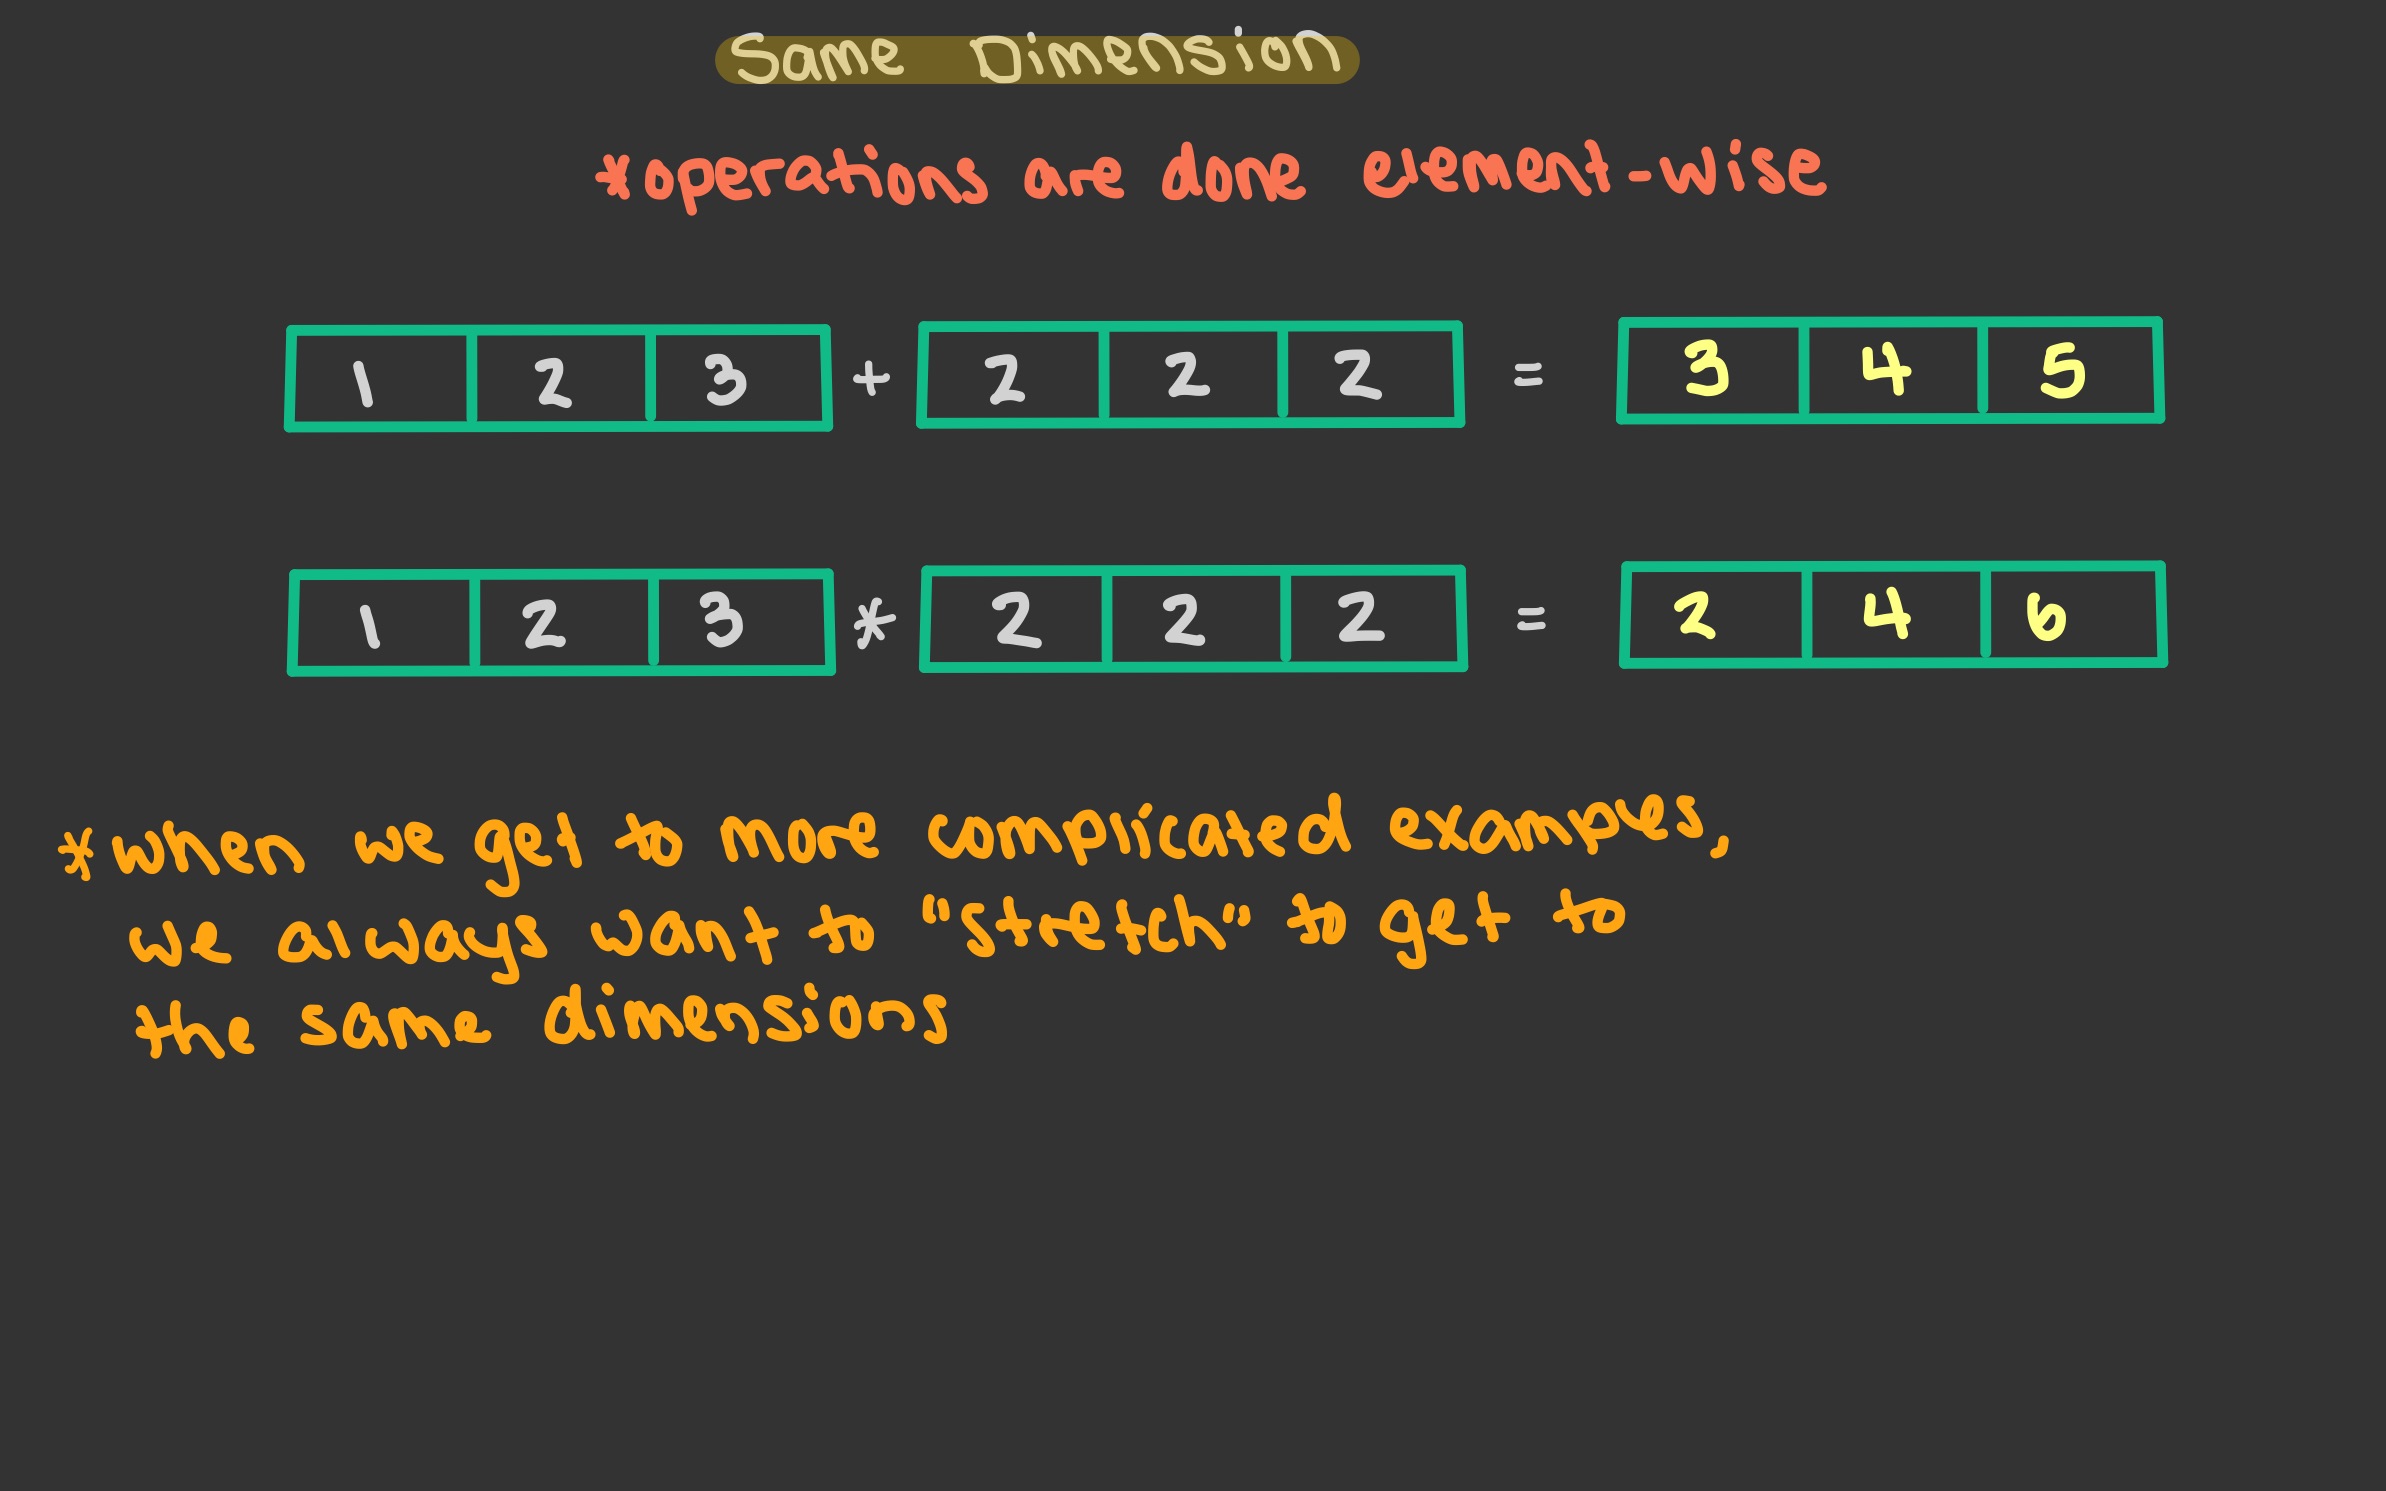 Same Dimension
*operations are done element-wise
1 2 3 + 2 2 2 = 3 4 5
1 2 3 * 2 2 2 = 2 4 6
*when we get to more complicated examples,
we always want to "stretch" to get to
the same dimensions